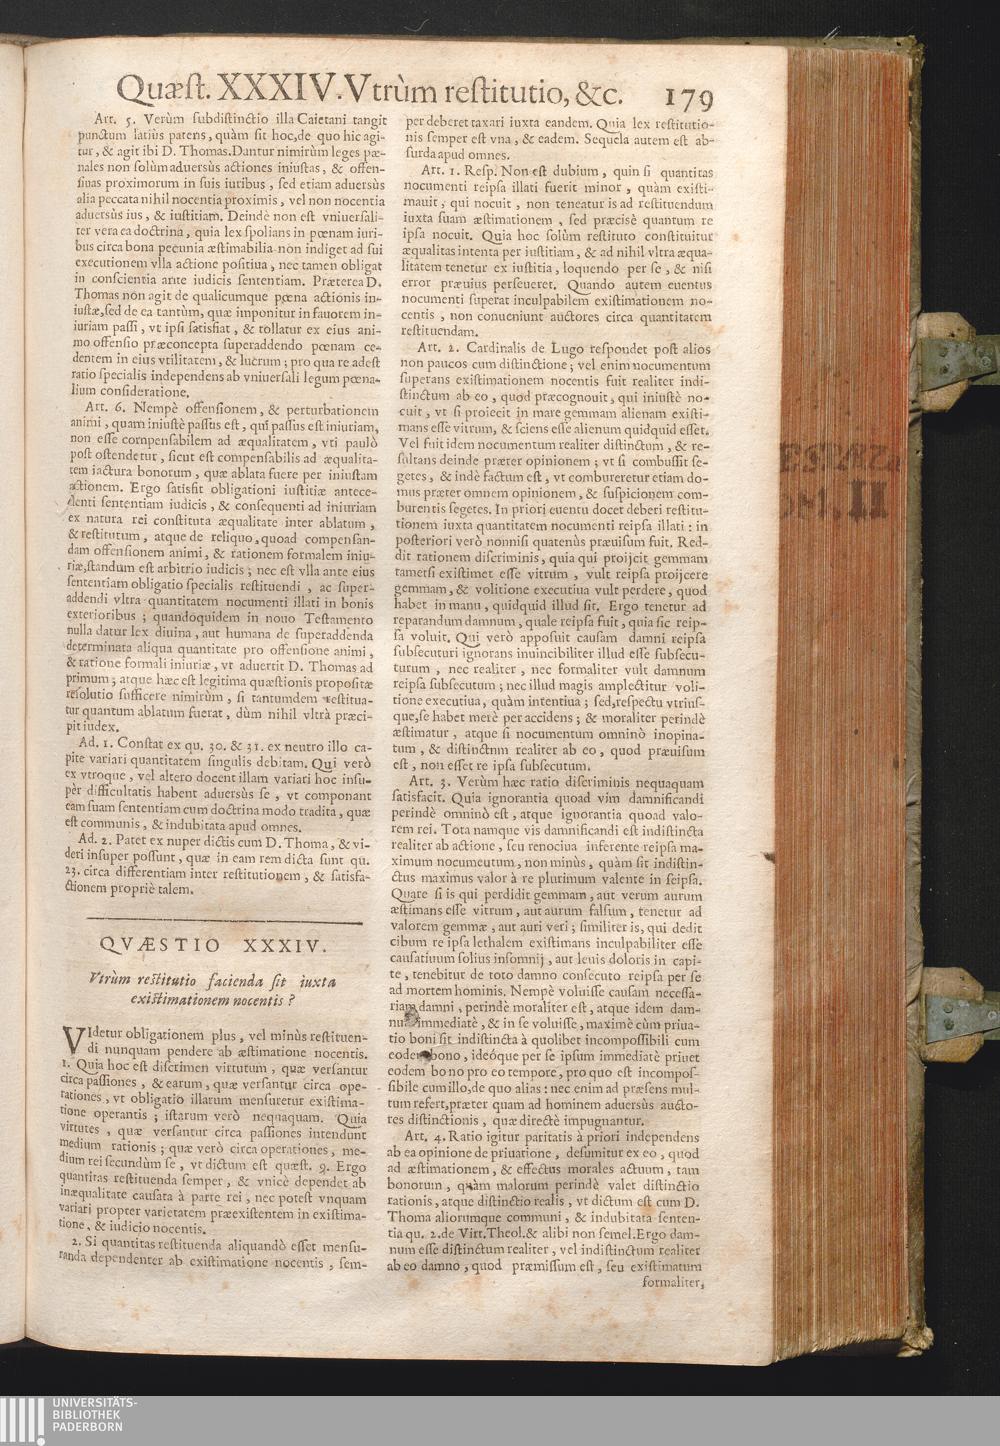 Quæst. XXXIV. Vtrùm restitutio, &c. 179
Art. 5. Verùm subdistinctio illa Caietani tangit
punctum latiùs patens, quàm sit hoc, de quo hic agi-
tur, & agit ibi D. Thomas. Dantur nimirùm leges pœ-
nales non solùm aduersùs actiones iniustas, & offen-
siuas proximorum in suis iuribus, sed etiam aduersùs
alia peccata nihil nocentia proximis, vel non nocentia
aduersùs ius, & iustitiam. Deindè non est vniuersali-
ter vera ea doctrina, quia lex spolians in pœnam iuri-
bus circa bona pecunia æstimabilia non indiget ad sui
executionem vlla actione positiua, nec tamen obligat
in conscientia ante iudicis sententiam. Præterea D.
Thomas non agit de qualicumque pœna actionis in-
iustæ, sed de ea tantùm, quæ imponitur in fauorem in-
iuriam passi, vt ipsi satisfiat, & tollatur ex eius ani-
mo offensio præconcepta superaddendo pœnam ce-
dentem in eius vtilitatem, & lucrum; pro qua re adest
ratio specialis independens ab vniuersali legum pœna-
lium consideratione.
Art. 6. Nempè offensionem, & perturbationem
animi, quam iniustè passus est, qui passus est iniuriam,
non esse compensabilem ad æqualitatem, vti paulò
post ostendetur, sicut est compensabilis ad æqualita-
tem iactura bonorum, quæ ablata fuere per iniustam
actionem. Ergo satisfit obligationi iustitiæ antece-
denti sententiam iudicis, & consequenti ad iniuriam
ex natura rei constituta æqualitate inter ablatum,
& restitutum, atque de reliquo, quoad compensan-
dam offensionem animi, & rationem formalem iniu-
riæ, standum est arbitrio iudicis; nec est vlla ante eius
sententiam obligatio specialis restituendi, ac super-
addendi vltra quantitatem nocumenti illati in bonis
exterioribus; quandoquidem in nouo Testamento
nulla datur lex diuina, aut humana de superaddenda
determinata aliqua quantitate pro offensione animi,
& ratione formali iniuriæ, vt aduertit D. Thomas ad
primum; atque hæc est legitima quæstionis propositæ
resolutio sufficere nimirùm, si tantumdem restitua-
tur quantum ablatum fuerat, dùm nihil vltrà præci-
pit iudex.
Ad. 1. Constat ex qu. 30. & 31. ex neutro illo ca-
pite variari quantitatem singulis debitam. Qui verò
ex vtroque, vel altero docent illam variari hoc insu-
pèr difficultatis habent aduersùs se, vt componant
eam suam sententiam cum doctrina modo tradita, quæ
est communis, & indubitata apud omnes.
Ad. 2. Patet ex nuper dictis cum D. Thoma, & vi-
deri insuper possunt, quæ in eam rem dicta sunt qu.
23. circa differentiam inter restitutionem, & satisfa-
ctionem propriè talem.
QVÆSTIO XXXIV.
Vtrùm restitutio facienda sit iuxta
existimationem nocentis?
VIdetur obligationem plus, vel minùs restituen-
di nunquam pendere ab æstimatione nocentis.
1. Quia hoc est discrimen virtutum, quæ versantur
circa passiones, & earum, quæ versantur circa ope-
rationes, vt obligatio illarum mensuretur existima-
tione operantis; istarum verò nequaquam. Quia
virtutes, quæ versantur circa passiones intendunt
medium rationis; quæ verò circa operationes, me-
dium rei secundùm se, vt dictum est quæst. 9. Ergo
quantitas restituenda semper, & vnicè dependet ab
inæqualitate causata à parte rei, nec potest vnquam
variari propter varietatem præexistentem in existima-
tione, & iudicio nocentis.
2. Si quantitas restituenda aliquandò esset mensu-
randa dependenter ab existimatione nocentis, sem-
per deberet taxari iuxta eandem. Quia lex restitutio-
nis semper est vna, & eadem. Sequela autem est ab-
surda apud omnes.
Art. 1. Resp. Non est dubium, quin si quantitas
nocumenti reipsa illati fuerit minor, quàm existi-
mauit, qui nocuit, non teneatur is ad restituendum
iuxta suam æstimationem, sed præcisè quantum re
ipsa nocuit. Quia hoc solùm restituto constituitur
æqualitas intenta per iustitiam, & ad nihil vltra æqua-
litatem tenetur ex iustitia, loquendo per se, & nisi
error præuius perseueret. Quando autem euentus
nocumenti superat inculpabilem existimationem no-
centis, non conueniunt auctores circa quantitatem
restituendam.
Art. 2. Cardinalis de Lugo respondet post alios
non paucos cum distinctione; vel enim nocumentum
superans existimationem nocentis fuit realiter indi-
stinctum ab eo, quod præcognouit, qui iniustè no-
cuit, vt si proiecit in mare gemmam alienam existi-
mans esse vitrum, & sciens esse alienum quidquid esset.
Vel fuit idem nocumentum realiter distinctum, & re-
sultans deinde præter opinionem; vt si combussit se-
getes, & indè factum est, vt combureretur etiam do-
mus præter omnem opinionem, & suspicionem com-
burentis segetes. In priori euentu docet deberi restitu-
tionem iuxta quantitatem nocumenti reipsa illati: in
posteriori verò nonnisi quatenùs præuisum fuit. Red-
dit rationem discriminis, quia qui proijcit gemmam
tametsi existimet esse vitrum, vult reipsa proijcere
gemmam, & volitione executiua vult perdere, quod
habet in manu, quidquid illud sit. Ergo tenetur ad
reparandum damnum, quale reipsa fuit, quia sic reip-
sa voluit. Qui verò apposuit causam damni reipsa
subsecuturi ignorans inuincibiliter illud esse subsecu-
turum, nec realiter, nec formaliter vult damnum
reipsa subsecutum; nec illud magis amplectitur voli-
tione executiua, quàm intentiua; sed, respectu vtrius-
que, se habet merè per accidens; & moraliter perindè
æstimatur, atque si nocumentum omninò inopina-
tum, & distinctnm realiter ab eo, quod præuisum
est, non esset re ipsa subsecutum.
Art. 3. Verùm hæc ratio discriminis nequaquam
satisfacit. Quia ignorantia quoad vim damnificandi
perindè omninò est, atque ignorantia quoad valo-
rem rei. Tota namque vis damnificandi est indistincta
realiter ab actione, seu renociua inferente reipsa ma-
ximum nocumeutum, non minùs, quàm sit indistin-
ctus maximus valor à re plurimum valente in seipsa.
Quare si is qui perdidit gemmam, aut verum aurum
æstimans esse vitrum, aut aurum falsum, tenetur ad
valorem gemmæ, aut auri veri; similiter is, qui dedit
cibum re ipsa lethalem existimans inculpabiliter esse
causatiuum solius insomnij, aut leuis doloris in capi-
te, tenebitur de toto damno consecuto reipsa per se
ad mortem hominis. Nempè voluisse causam necessa-
riam damni, perindè moraliter est, atque idem dam-
num immediatè, & in se voluisse, maximè cùm priua-
tio boni sit indistincta à quolibet incompossibili cum
eodem bono, ideóque per se ipsum immediatè priuet
eodem bono pro eo tempore, pro quo est incompos-
sibile cum illo, de quo alias: nec enim ad præsens mul-
tum refert, præter quam ad hominem aduersùs aucto-
res distinctionis, quæ directè impugnantur.
Art. 4. Ratio igitur paritatis à priori independens
ab ea opinione de priuatione, desumitur ex eo, quod
ad æstimationem, & effectus morales actuum, tam
bonorum, quàm malorum perindè valet distinctio
rationis, atque distinctio realis, vt dictum est cum D.
Thoma aliorumque communi, & indubitata senten-
tia qu. 2. de Virt. Theol. & alibi non semel. Ergo dam-
num esse distinctum realiter, vel indistinctum realiter
ab eo damno, quod præmissum est, seu existimatum
formaliter,
UNIVERSITÄTS-
BIBLIOTHEK
PADERBORN